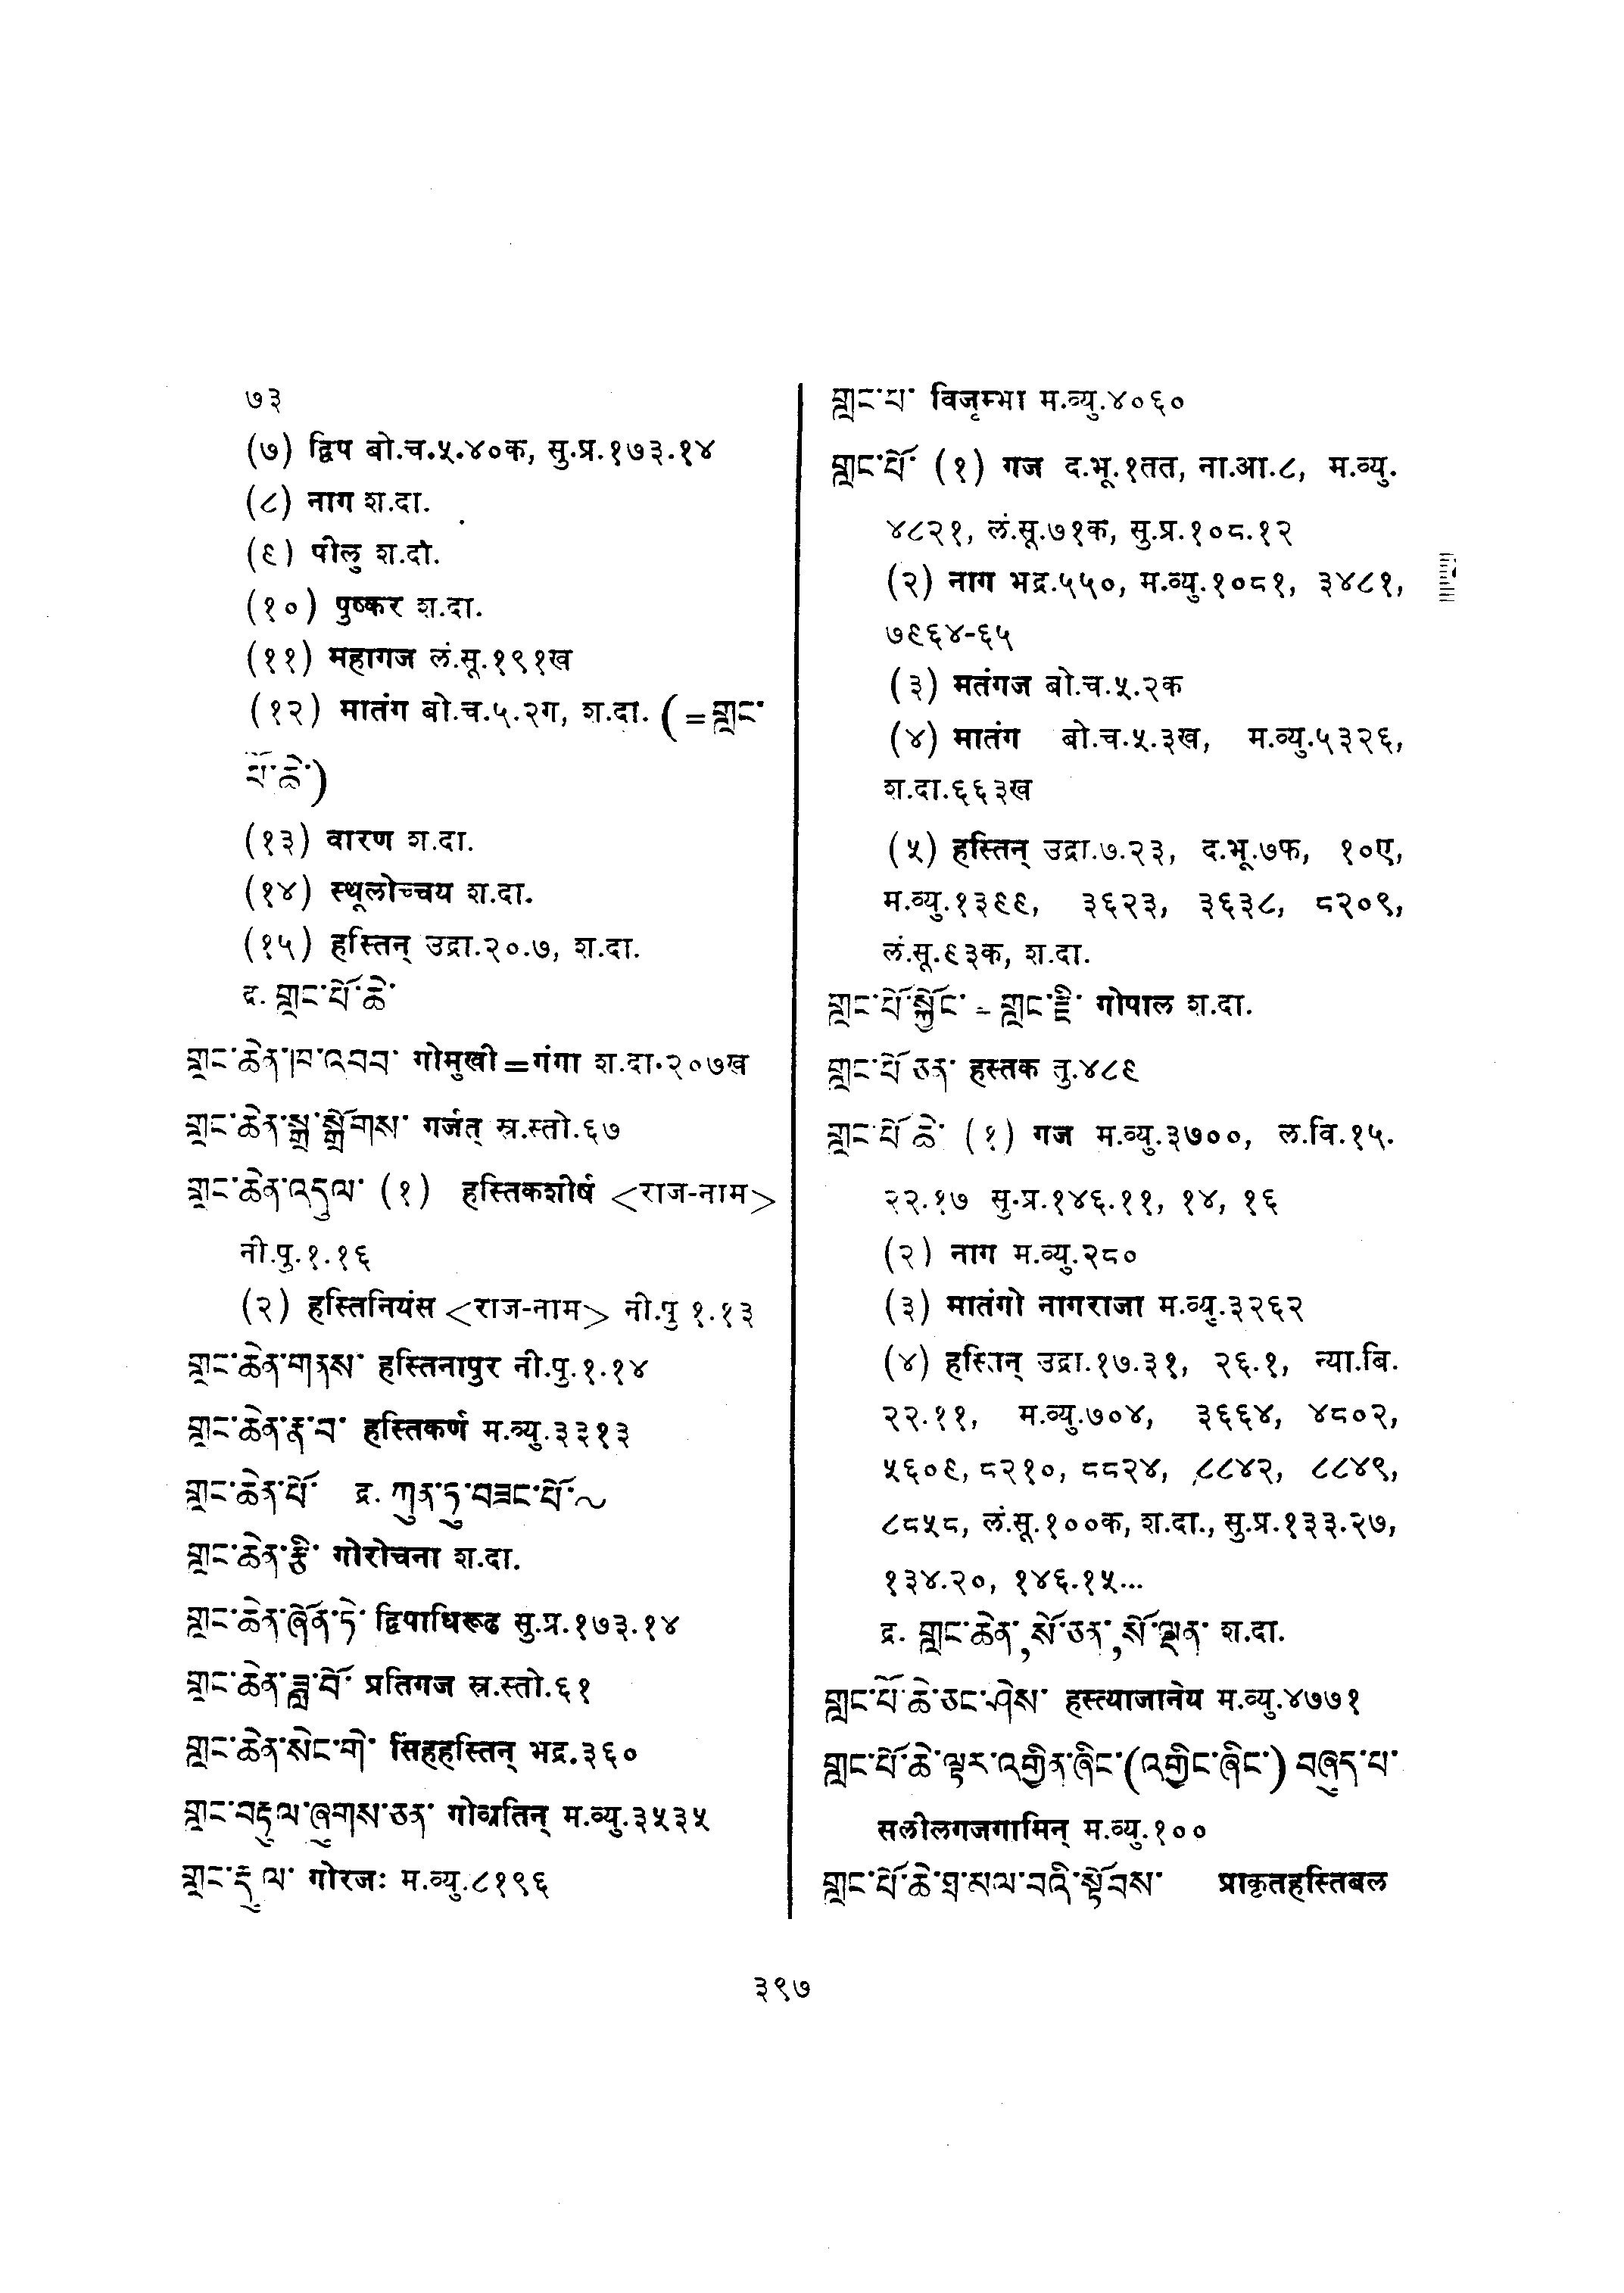 ७३
(७) द्विप बो.च.५.४०क, सु.प्र.१७३.१४
(८) नाग श.दा.
(९) पीलु श.दा.
(१०) पुष्कर श.दा.
(११) महागज लं.सू.१९१ख
(१२) मातंग बो.च.५.२ग, श.दा. (=གླང་
པོ་ཆེ་)
(१३) वारण श.दा.
(१४) स्थूलोच्चय श.दा.
(१५) हस्तिन् उद्रा.२०.७, श.दा.
द्र. གླང་པོ་ཆེ་
གླང་ཆེན་ཁ་འབབ་ गोमुखी=गंगा श.दा.२०७ख
གླང་ཆེན་སྒྲ་སྒྲོགས་ गर्जत् स्र.स्तो.६७
གླང་ཆེན་འདུལ་ (१) हस्तिकशीर्ष <राज-नाम>
नी.पु.१.१६
(२) हस्तिनियंस <राज-नाम> नी.पु १.१३
གླང་ཆེན་གནས་ हस्तिनापुर नी.पु.१.१४
གླང་ཆེན་རྣ་བ་ हस्तिकर्ण म.व्यु.३३१३
གླང་ཆེན་པོ་ द्र. ཀུན་ཏུ་བཟང་པོ་~
གླང་ཆེན་རྩི་ गोरोचना श.दा.
གླང་ཆེན་ཞོན་ཏེ་ द्विपाधिरूढ सु.प्र.१७३.१४
གླང་ཆེན་ཟླ་བོ་ प्रतिगज स्र.स्तो.६१
གླང་ཆེན་སེང་གེ་ सिंहहस्तिन् भद्र.३६०
གླང་བརྟུལ་ཞུགས་ཅན་ गोव्रतिन् म.व्यु.३५३५
གླང་རྡུལ་ गोरजः म.व्यु.८१९६
གླང་པ་ विजृम्भा म.व्यु.४०६०
གླང་པོ་ (१) गज द.भू.१तत, ना.आ.८, म.व्यु.
४८२१, लं.सू.७१क, सु.प्र.१०८.१२
(२) नाग भद्र.५५०, म.व्यु.१०८१, ३४८१,
७९६४-६५
(३) मतंगज बो.च.५.२क
(४) मातंग बो.च.५.३ख, म.व्यु.५३२६,
श.दा.६६३ख
(५) हस्तिन् उद्रा.७.२३, द.भू.७फ, १०ए,
म.व्यु.१३९९, ३६२३, ३६३८, ८२०९,
लं.सू.९३क, श.दा.
གླང་པོ་སྐྱོང་ = གླང་རྫི་ गोपाल श.दा.
གླང་པོ་ཅན་ हस्तक तु.४८९
གླང་པོ་ཆེ་ (१) गज म.व्यु.३७००, ल.वि.१५.
२२.१७ सु.प्र.१४६.११, १४, १६
(२) नाग म.व्यु.२८०
(३) मातंगो नागराजा म.व्यु.३२६२
(४) हस्तिन् उद्रा.१७.३१, २६.१, न्या.बि.
२२.११, म.व्यु.७०४, ३६६४, ४८०२,
५६०९, ८२१०, ८८२४, ८८४२, ८८४९,
८८५८, लं.सू.१००क, श.दा., सु.प्र.१३३.२७,
१३४.२०, १४६.१५...
द्र. གླང་ཆེན་, སོ་ཅན་, སོ་ལྡན་ श.दा.
གླང་པོ་ཆེ་ཅང་ཤེས་ हस्त्याजानेय म.व्यु.४७७१
གླང་པོ་ཆེ་ལྟར་འགྱིན་ཞིང་(འགྱིང་ཞིང་) བཞུད་པ་
सलीलगजगामिन् म.व्यु.१००
གླང་པོ་ཆེ་ཐ་མལ་བའི་སྟོབས་ प्राकृतहस्तिबल
३९७